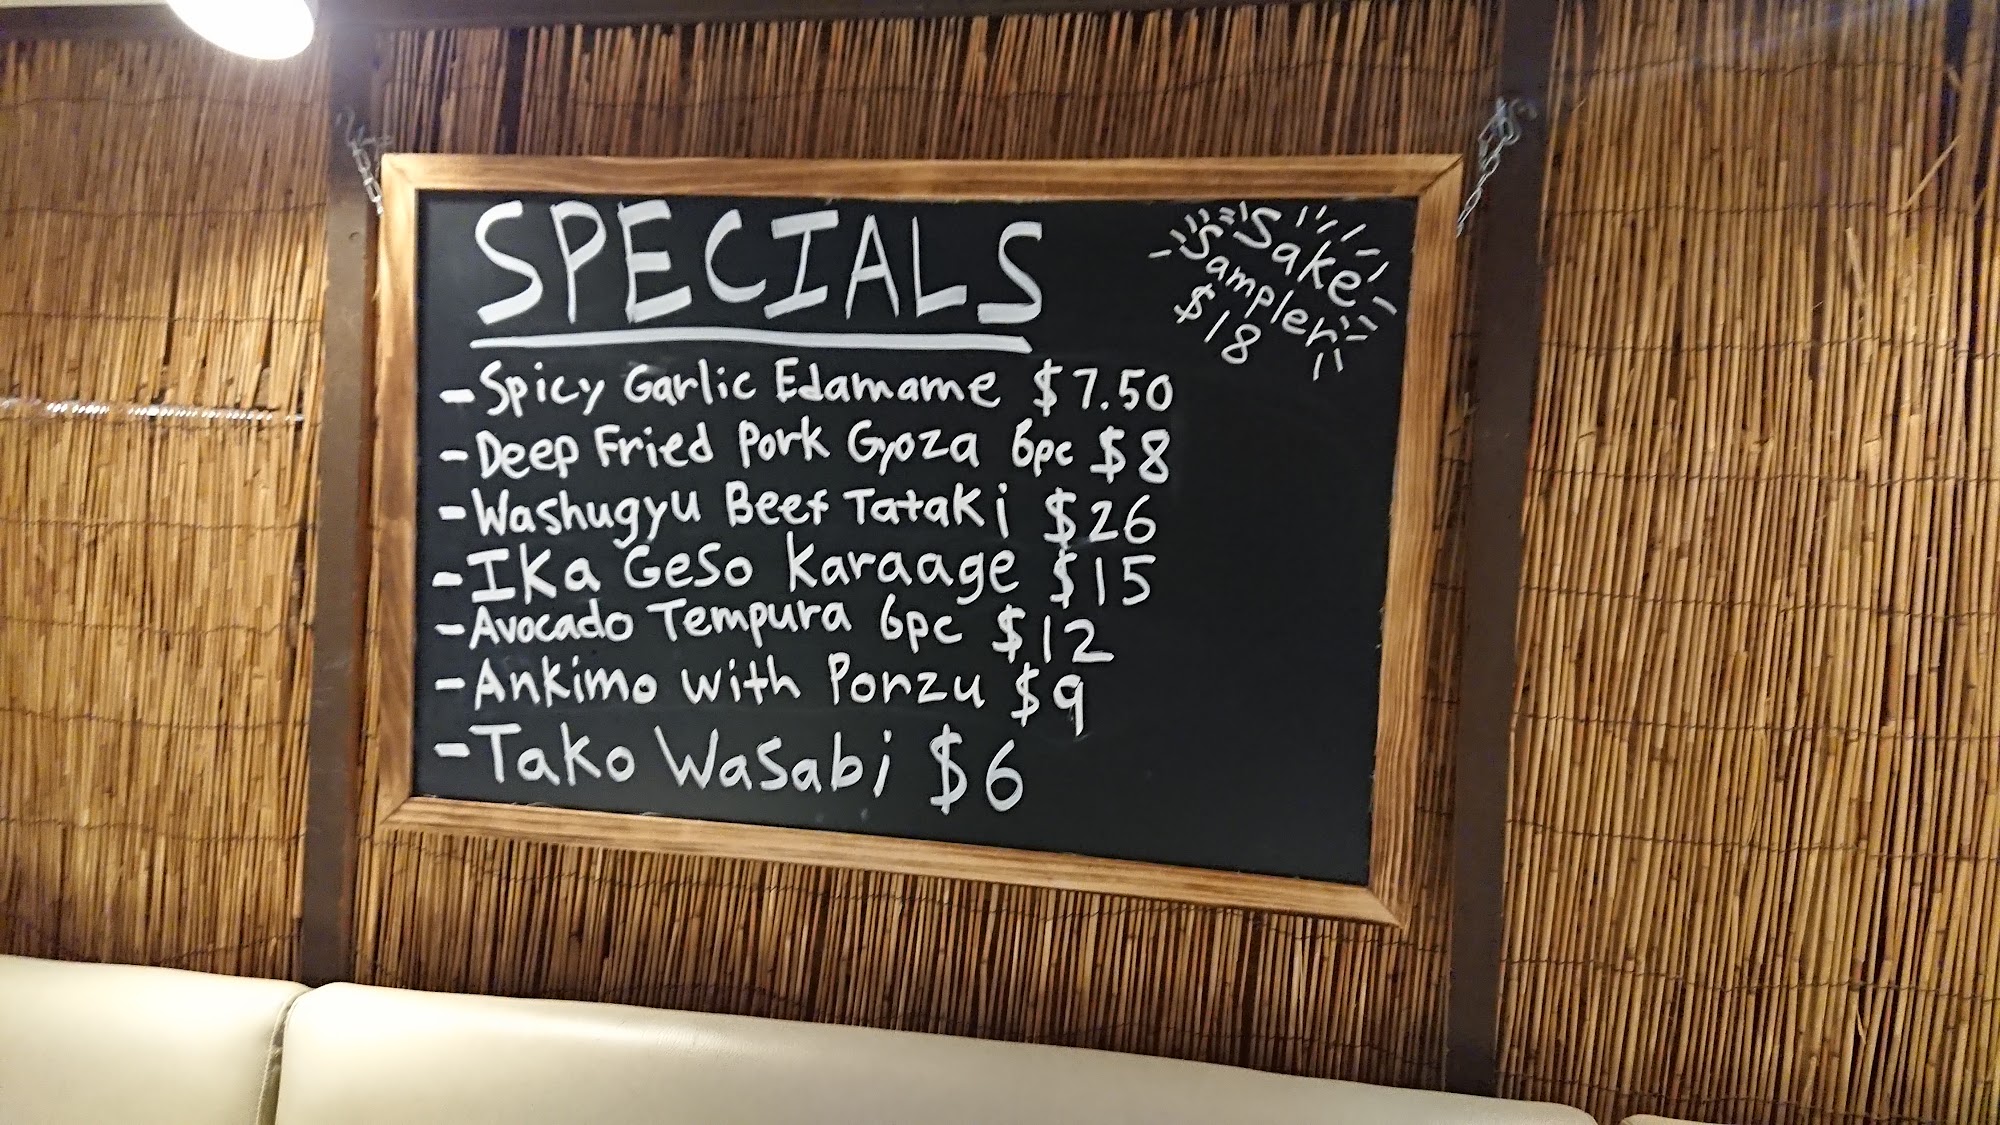 SPECIALS
Sake
Sampler
$18
- Spicy Garlic Edamame $7.50
- Deep Fried Pork Gyoza 6pc $8
- Washugyu Beef Tataki $26
- Ika Geso Karaage $15
- Avocado Tempura 6pc $12
- Ankimo with Ponzu $9
- Tako Wasabi $6